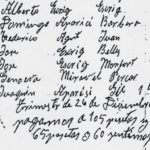 Alberto Guig Guig
Domingo Aparici Barber
Federico Agut Juan
José Guig Bells
José Guig Monfort
Genoveva Miravet Porcar
Joaquin Aparisi
trimestre de 24 de Diciembre
pagamos a 105 pesetas y
65 pesetas a 60 centimos